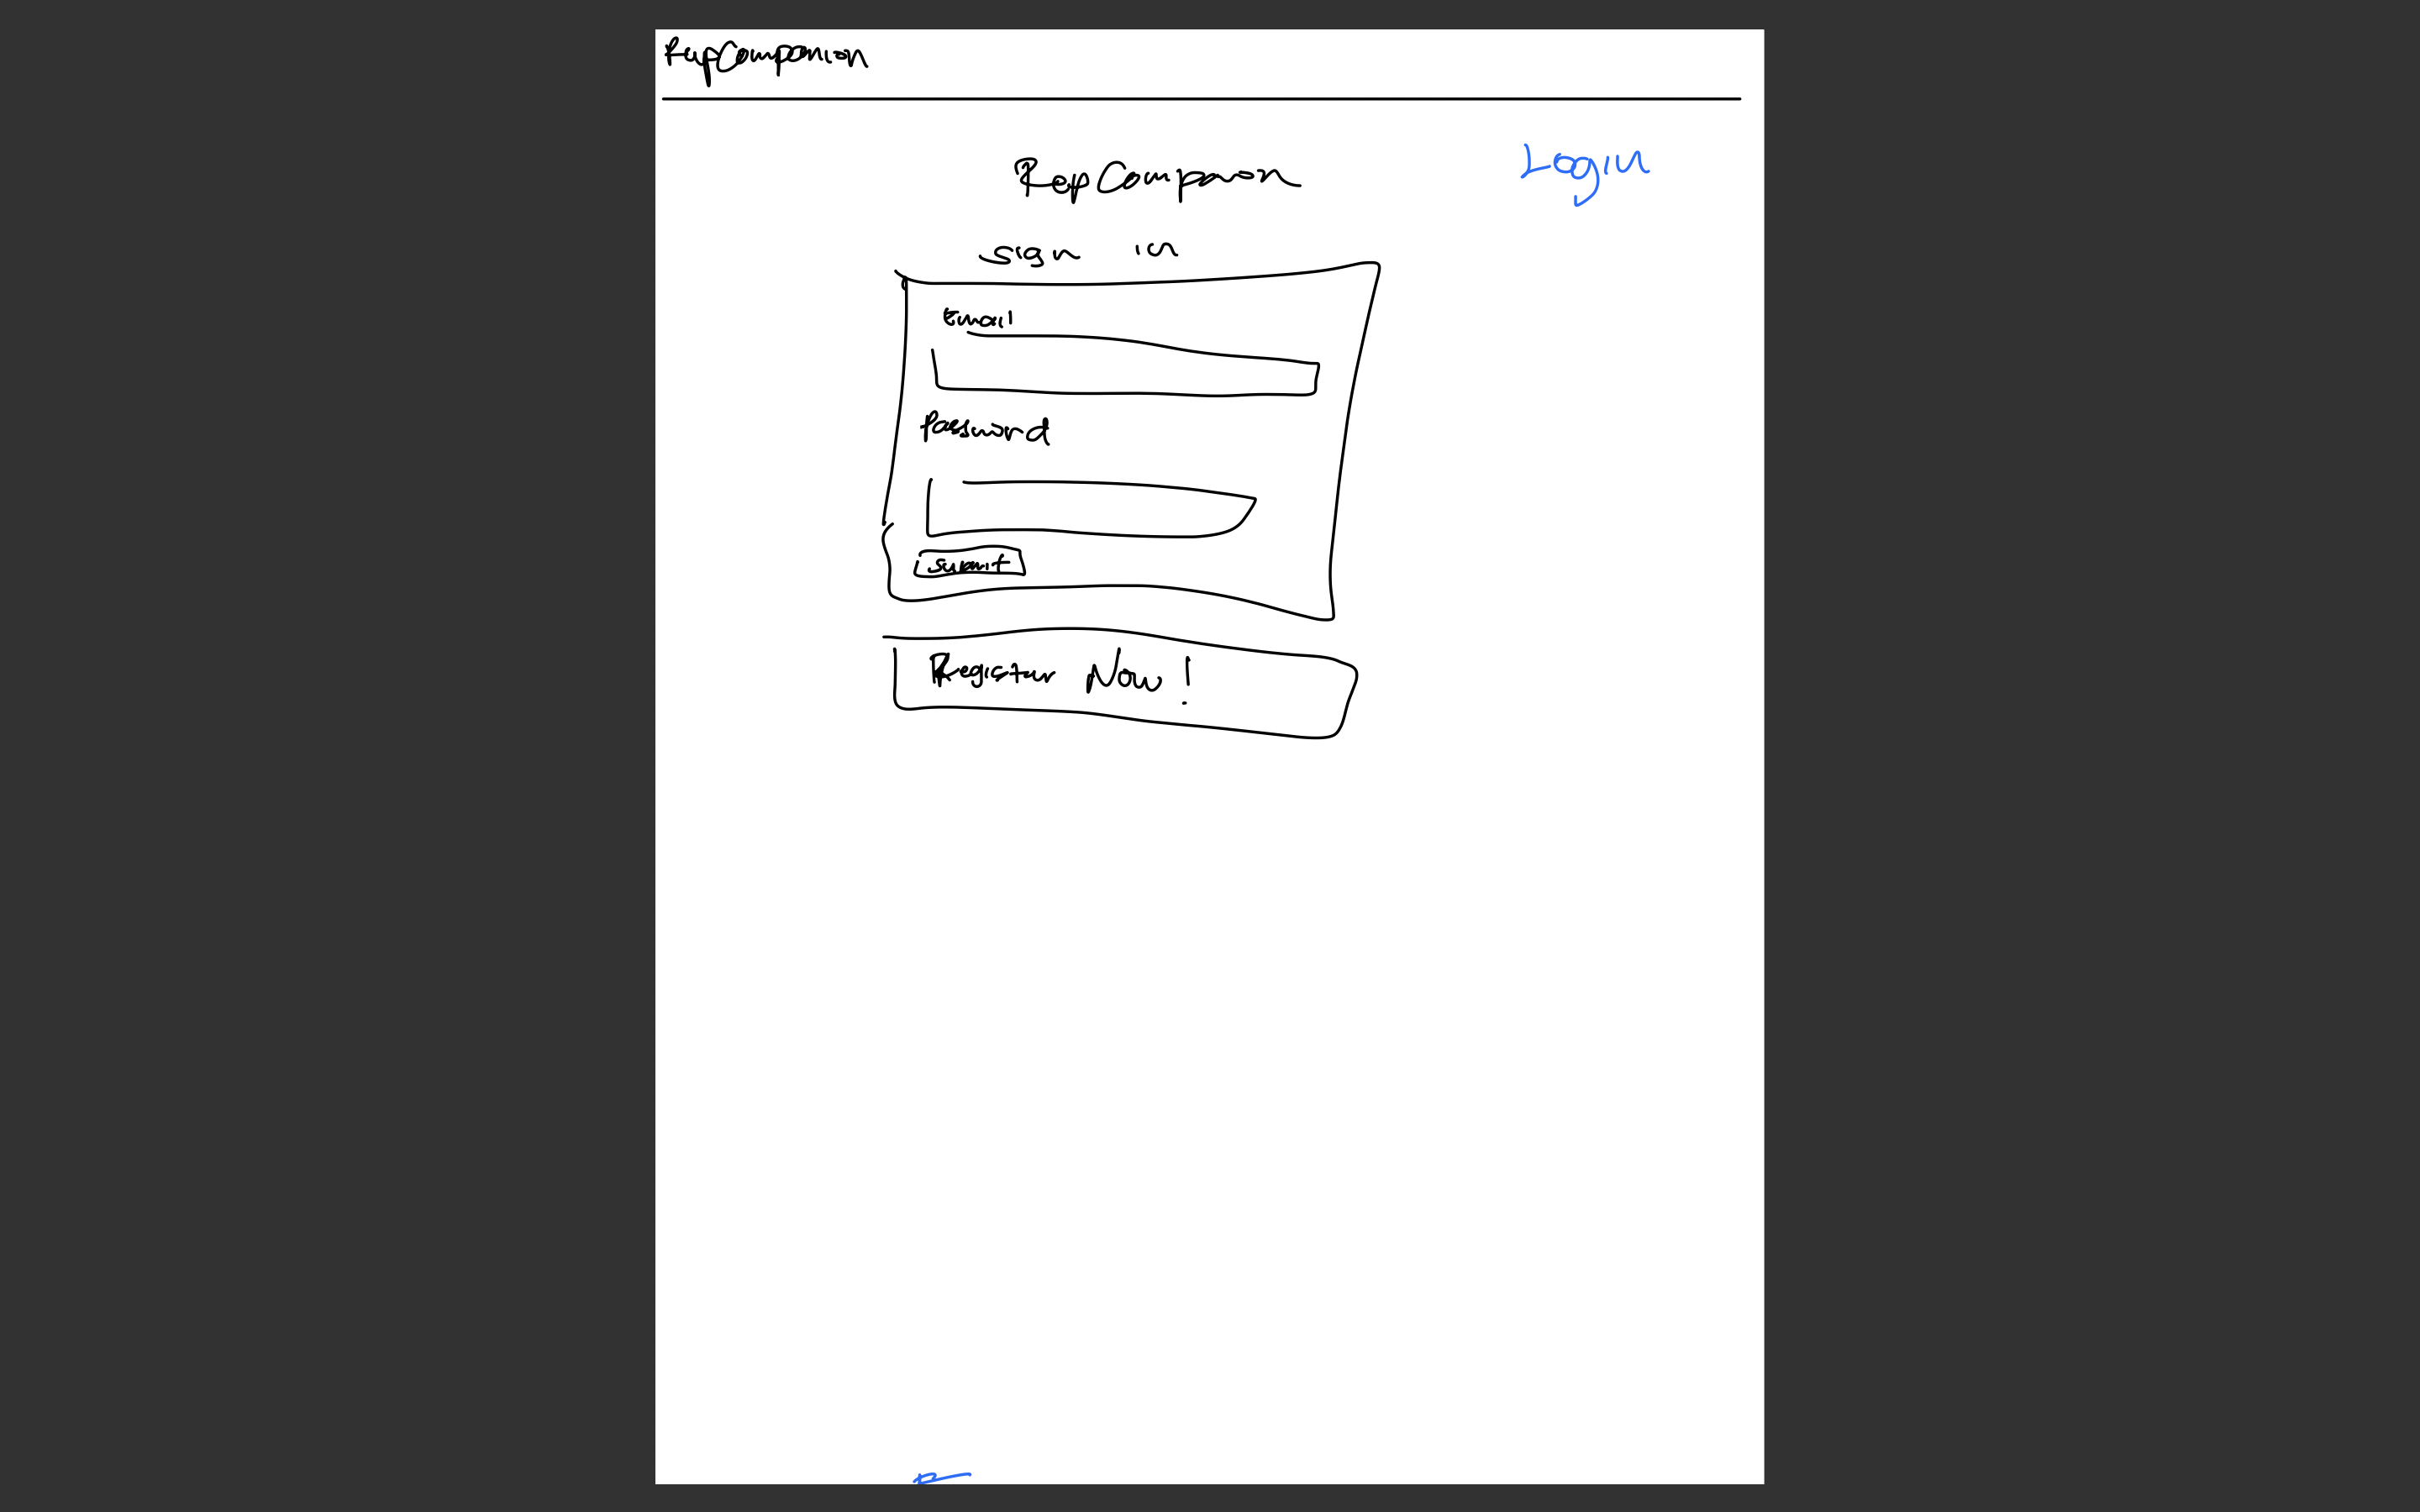 RepCompanion
RepCompanion
Login
Sign in
Email
Password
submit
Register Now!